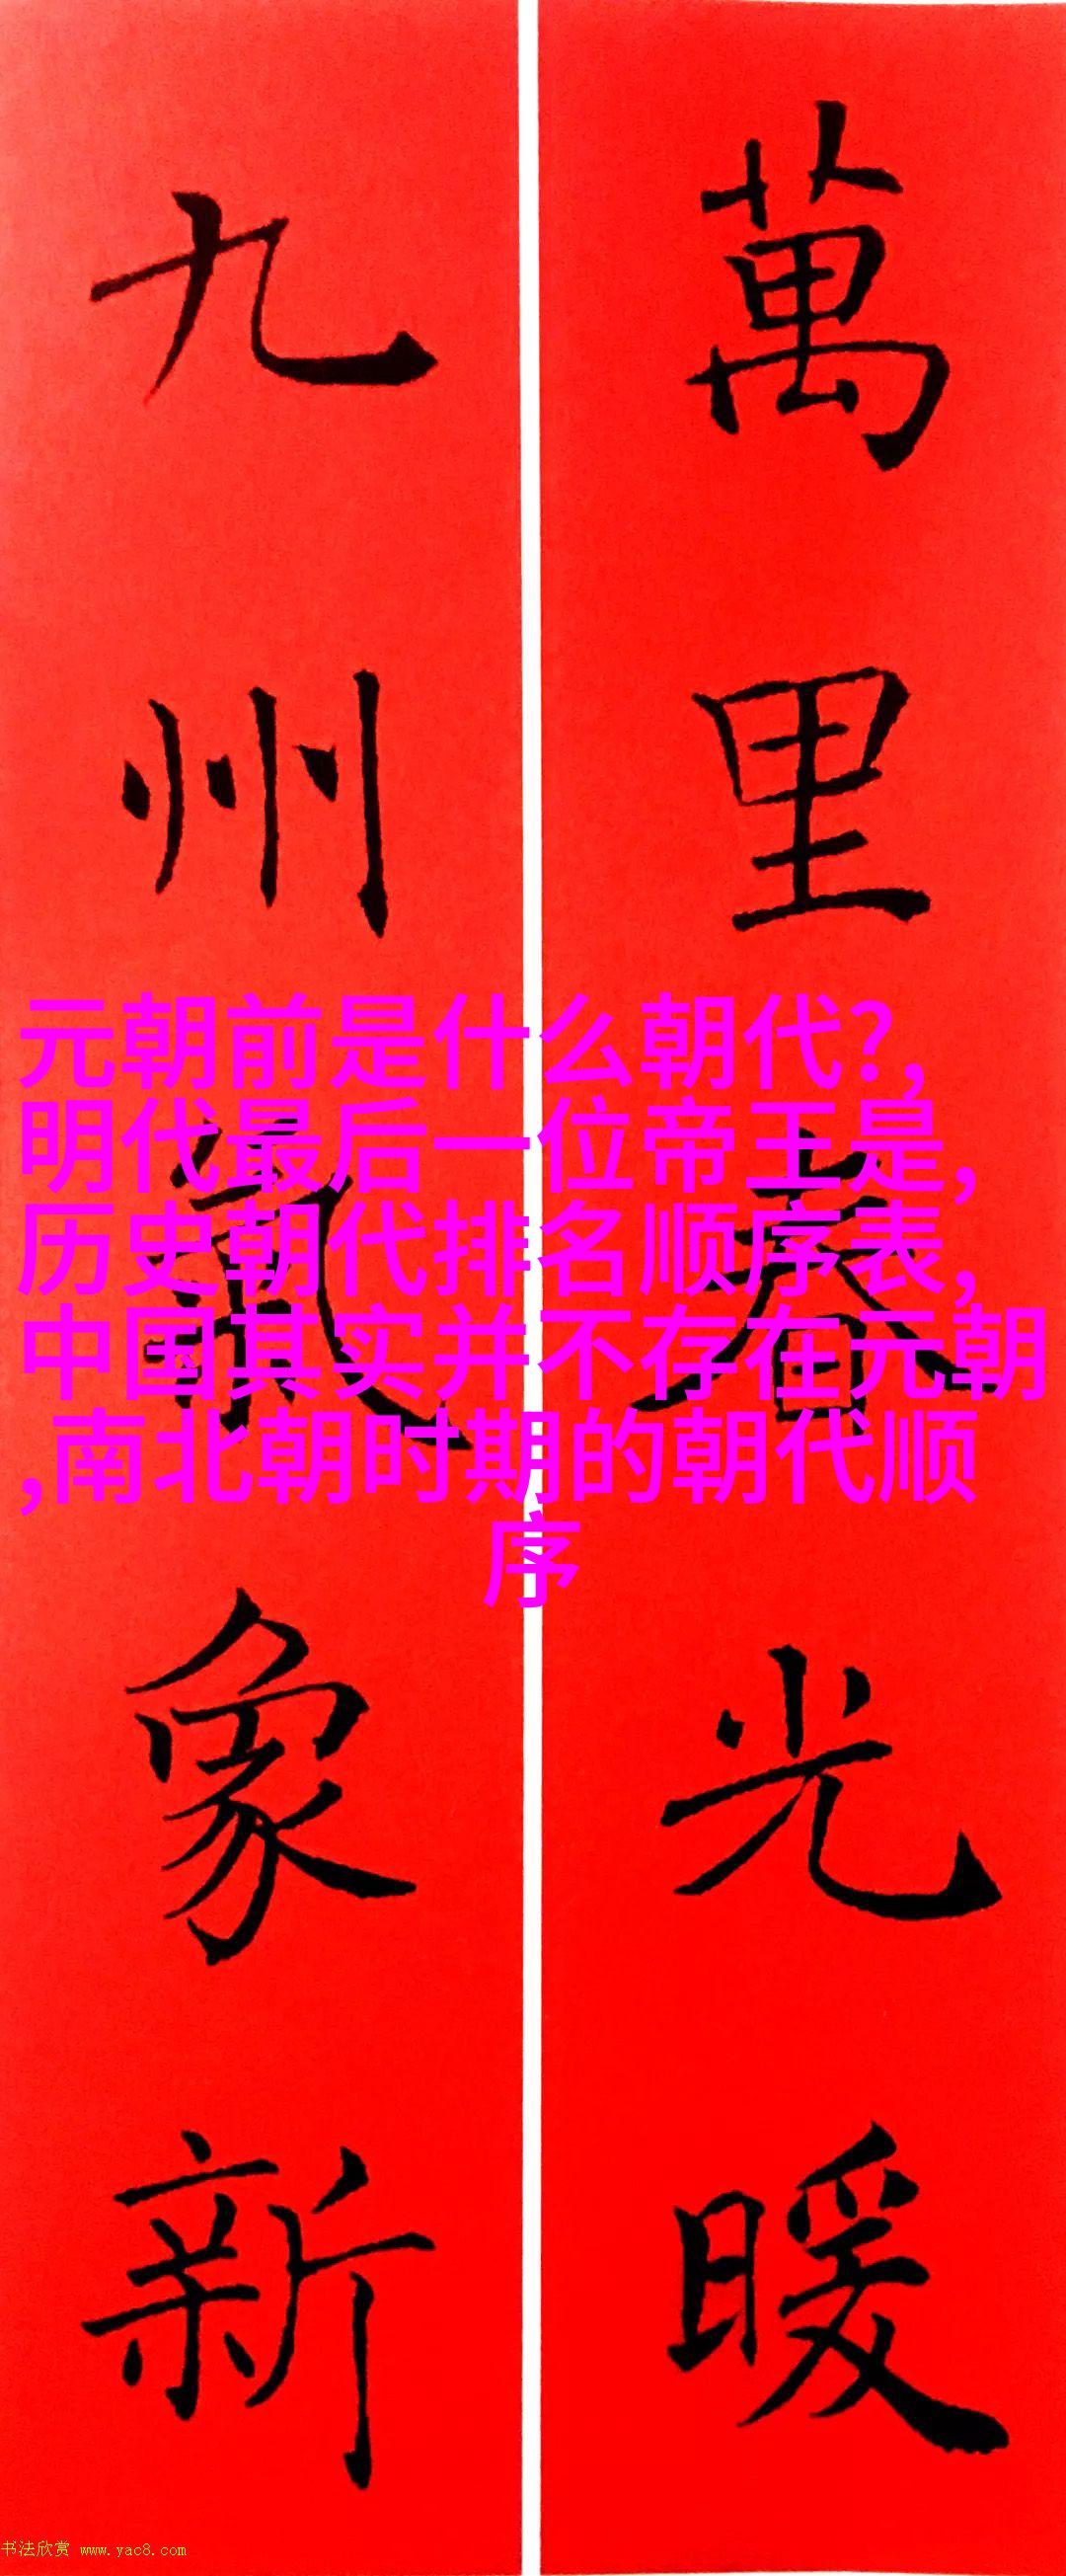 萬里春光暖
九州氣象新
元朝前是什么朝代?,
明代最后一位帝王是,
历史朝代排名顺序表,
中国其实并不存在元朝
,南北朝时期的朝代顺
序
书法欣赏 www.yac8.com